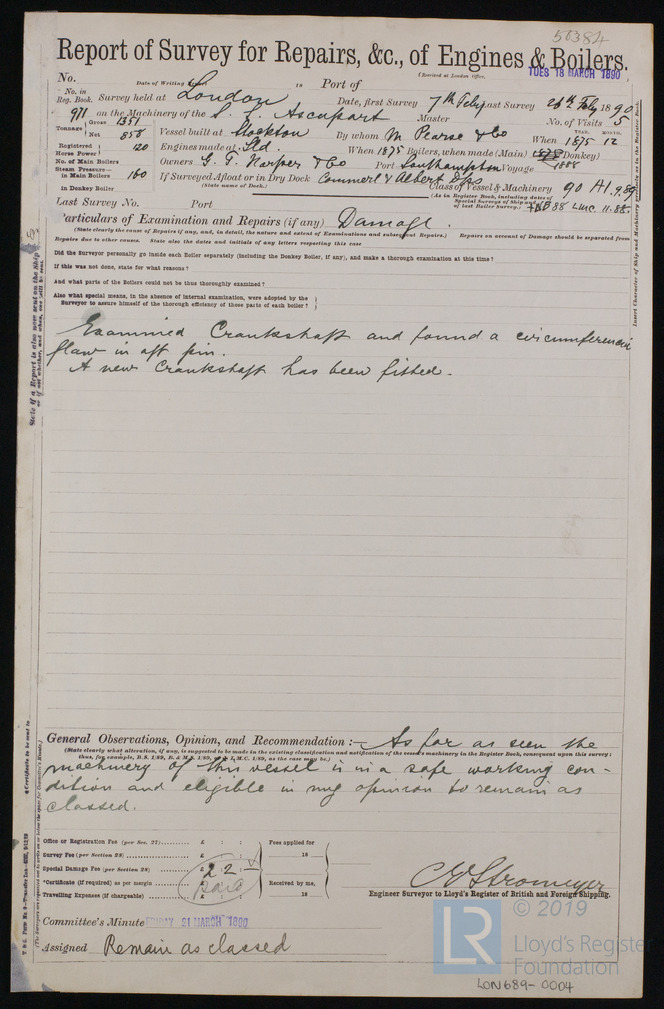 50384
Report of Survey for Repairs, &c., of Engines & Boilers.
(Received at London Office,
TUES 18 MARCH 1890
No. Date of Writing Report 18 Port of
No. in Reg. Book. Survey held at London Date, first Survey 7th Feby Last Survey 26th Feby 1890
971 on the Machinery of the S. S. Ascupart Master No. of Visits 5
Tonnage Gross 1351 Net 858 Vessel built at Stockton By whom M Pearse & Co When YEAR. 1875 MONTH. 12
Registered Horse Power 120 Engines made at Sld. When 1875 Boilers, when made (Main) 1888 Donkey)
No. of Main Boilers Owners G. T. Harper & Co Port Southampton Voyage
Steam Pressure— in Main Boilers 160 If Surveyed Afloat or in Dry Dock Commerl & Albert Dks Class of Vessel & Machinery 90 A1. 9.89
in Donkey Boiler (State name of Dock.) (As in Register Book, including dates of Special Surveys of Ship and of last Boiler Survey.) 88 LMC. 11.88.
Last Survey No. Port
Particulars of Examination and Repairs (if any) Damage.
(State clearly the cause of Repairs if any, and, in detail, the nature and extent of Examinations and subsequent Repairs.) Repairs on account of Damage should be separated from
Repairs due to other causes. State also the dates and initials of any letters respecting this case
Did the Surveyor personally go inside each Boiler separately (including the Donkey Boiler, if any), and make a thorough examination at this time?
If this was not done, state for what reasons?
And what parts of the Boilers could not be thus thoroughly examined?
Also what special means, in the absence of internal examination, were adopted by the
Surveyor to assure himself of the thorough efficiency of those parts of each boiler?
Examined Crankshaft and found a circumferencial
flaw in aft pin.
A new Crankshaft has been fitted.
General Observations, Opinion, and Recommendation :— As far as seen the
(State clearly what alteration, if any, is suggested to be made in the existing classification and notification of the vessel's machinery in the Register Book, consequent upon this survey:
thus, for example, B.S. 1/89, B. & M.S. 1/89, L.M.C. 1/89, as the case may be.)
machinery of this vessel is in a safe working con-
dition and eligible in my opinion to remain as
classed.
Office or Registration Fee (per Sec. 27) £ : : Fees applied for
Survey Fee (per Section 28) £ : : 18
Special Damage Fee (per Section 28) £ 2 2 : -
*Certificate (if required) as per margin Paid Received by me,
Travelling Expenses (if chargeable) £ : : 18
C E Stromeyer
Engineer Surveyor to Lloyd's Register of British and Foreign Shipping.
Committee's Minute FRIDAY 21 MARCH 1890
Assigned Remain as classed
LR
© 2019
Lloyd's Register
Foundation
LON689-0004